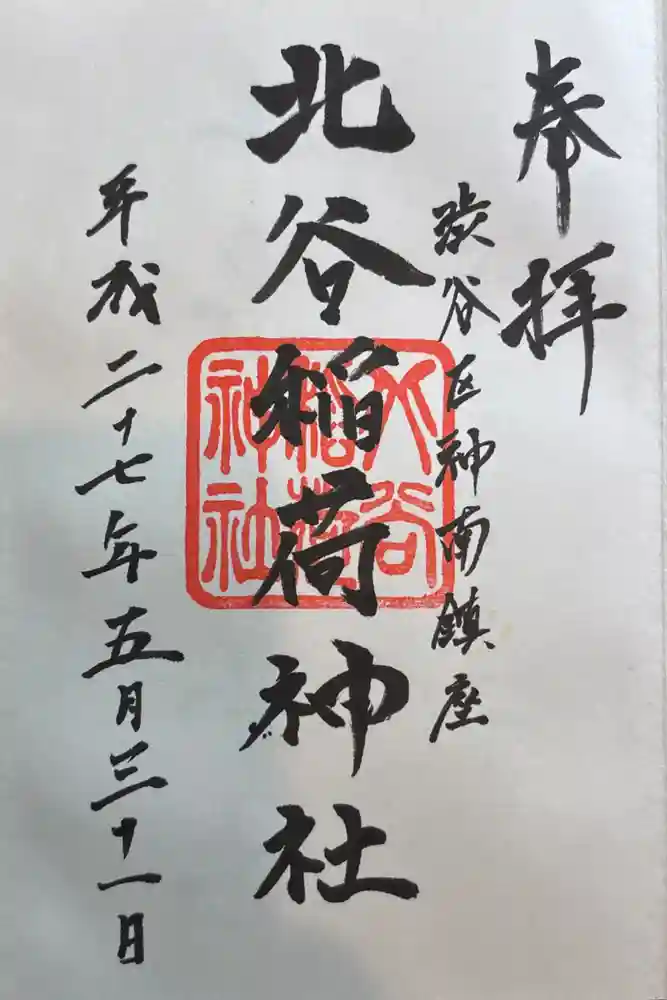 奉拝
渋谷区神南鎮座
北谷稲荷神社
平成二十七年五月三十一日
北谷稲荷神社